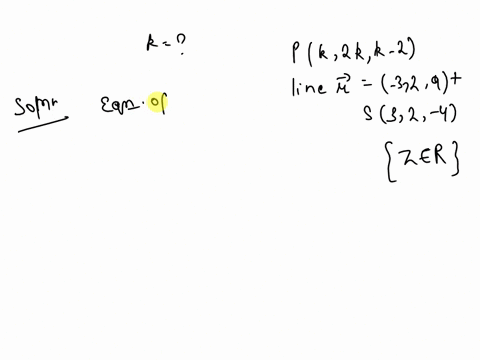 k = ?
P(k, 2k, k-2)
line r⃗ = (-3, 2, 9) +
s(3, 2, -4)
{Z∈R}
Soln Eqn. of